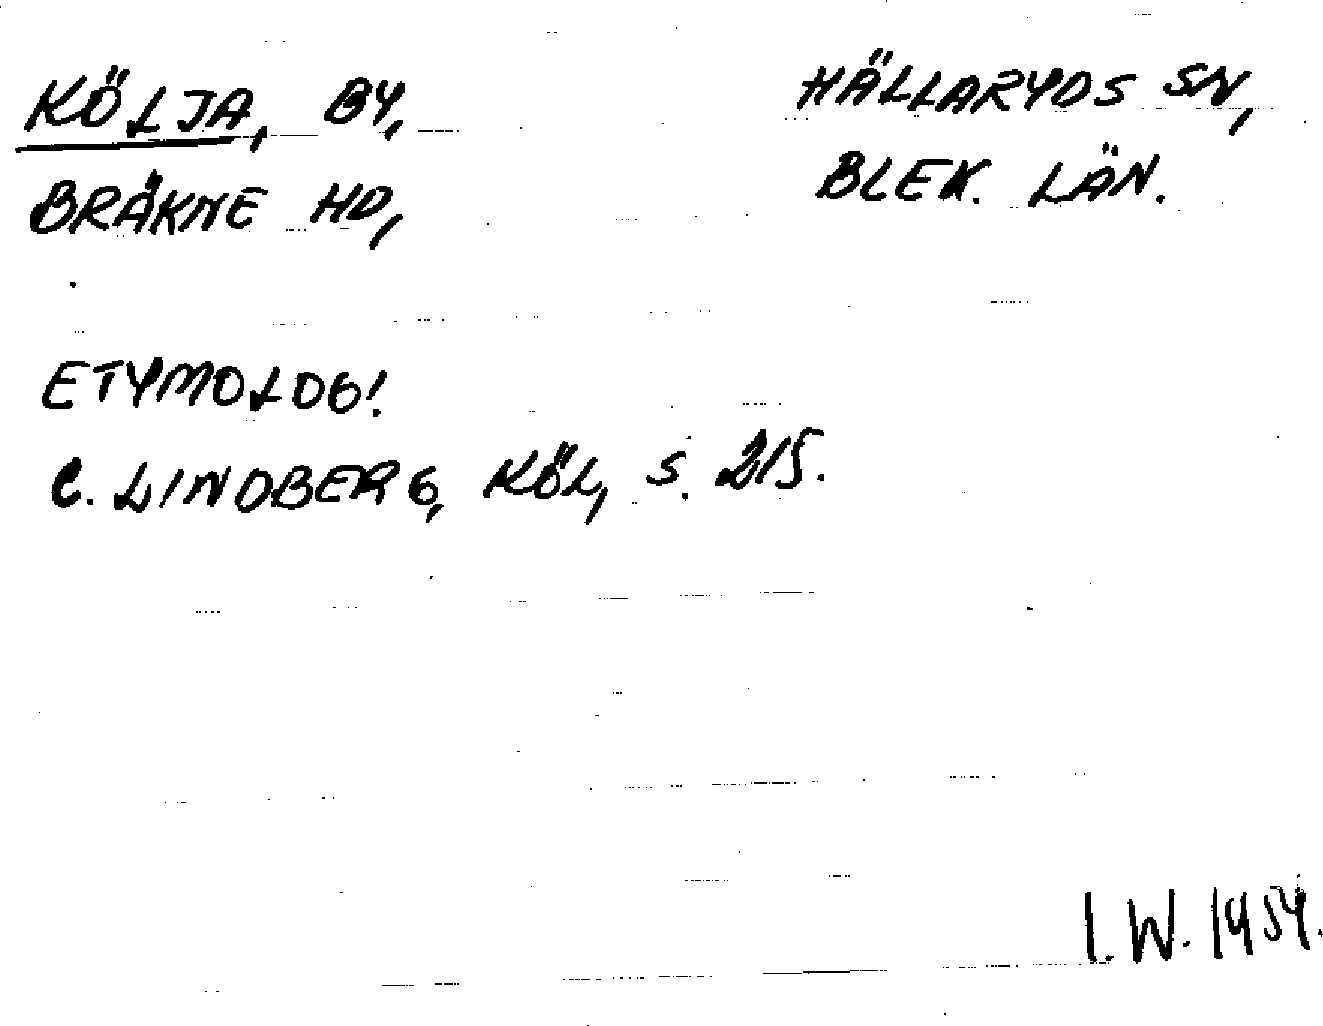 KÖLJA, BY, HÄLLARYDS SN,
BRÄKNE HD, BLEK. LÄN.
ETYMOLOG!
C. LINDBERG, KÖL, S. 215.
I. W. 1954.